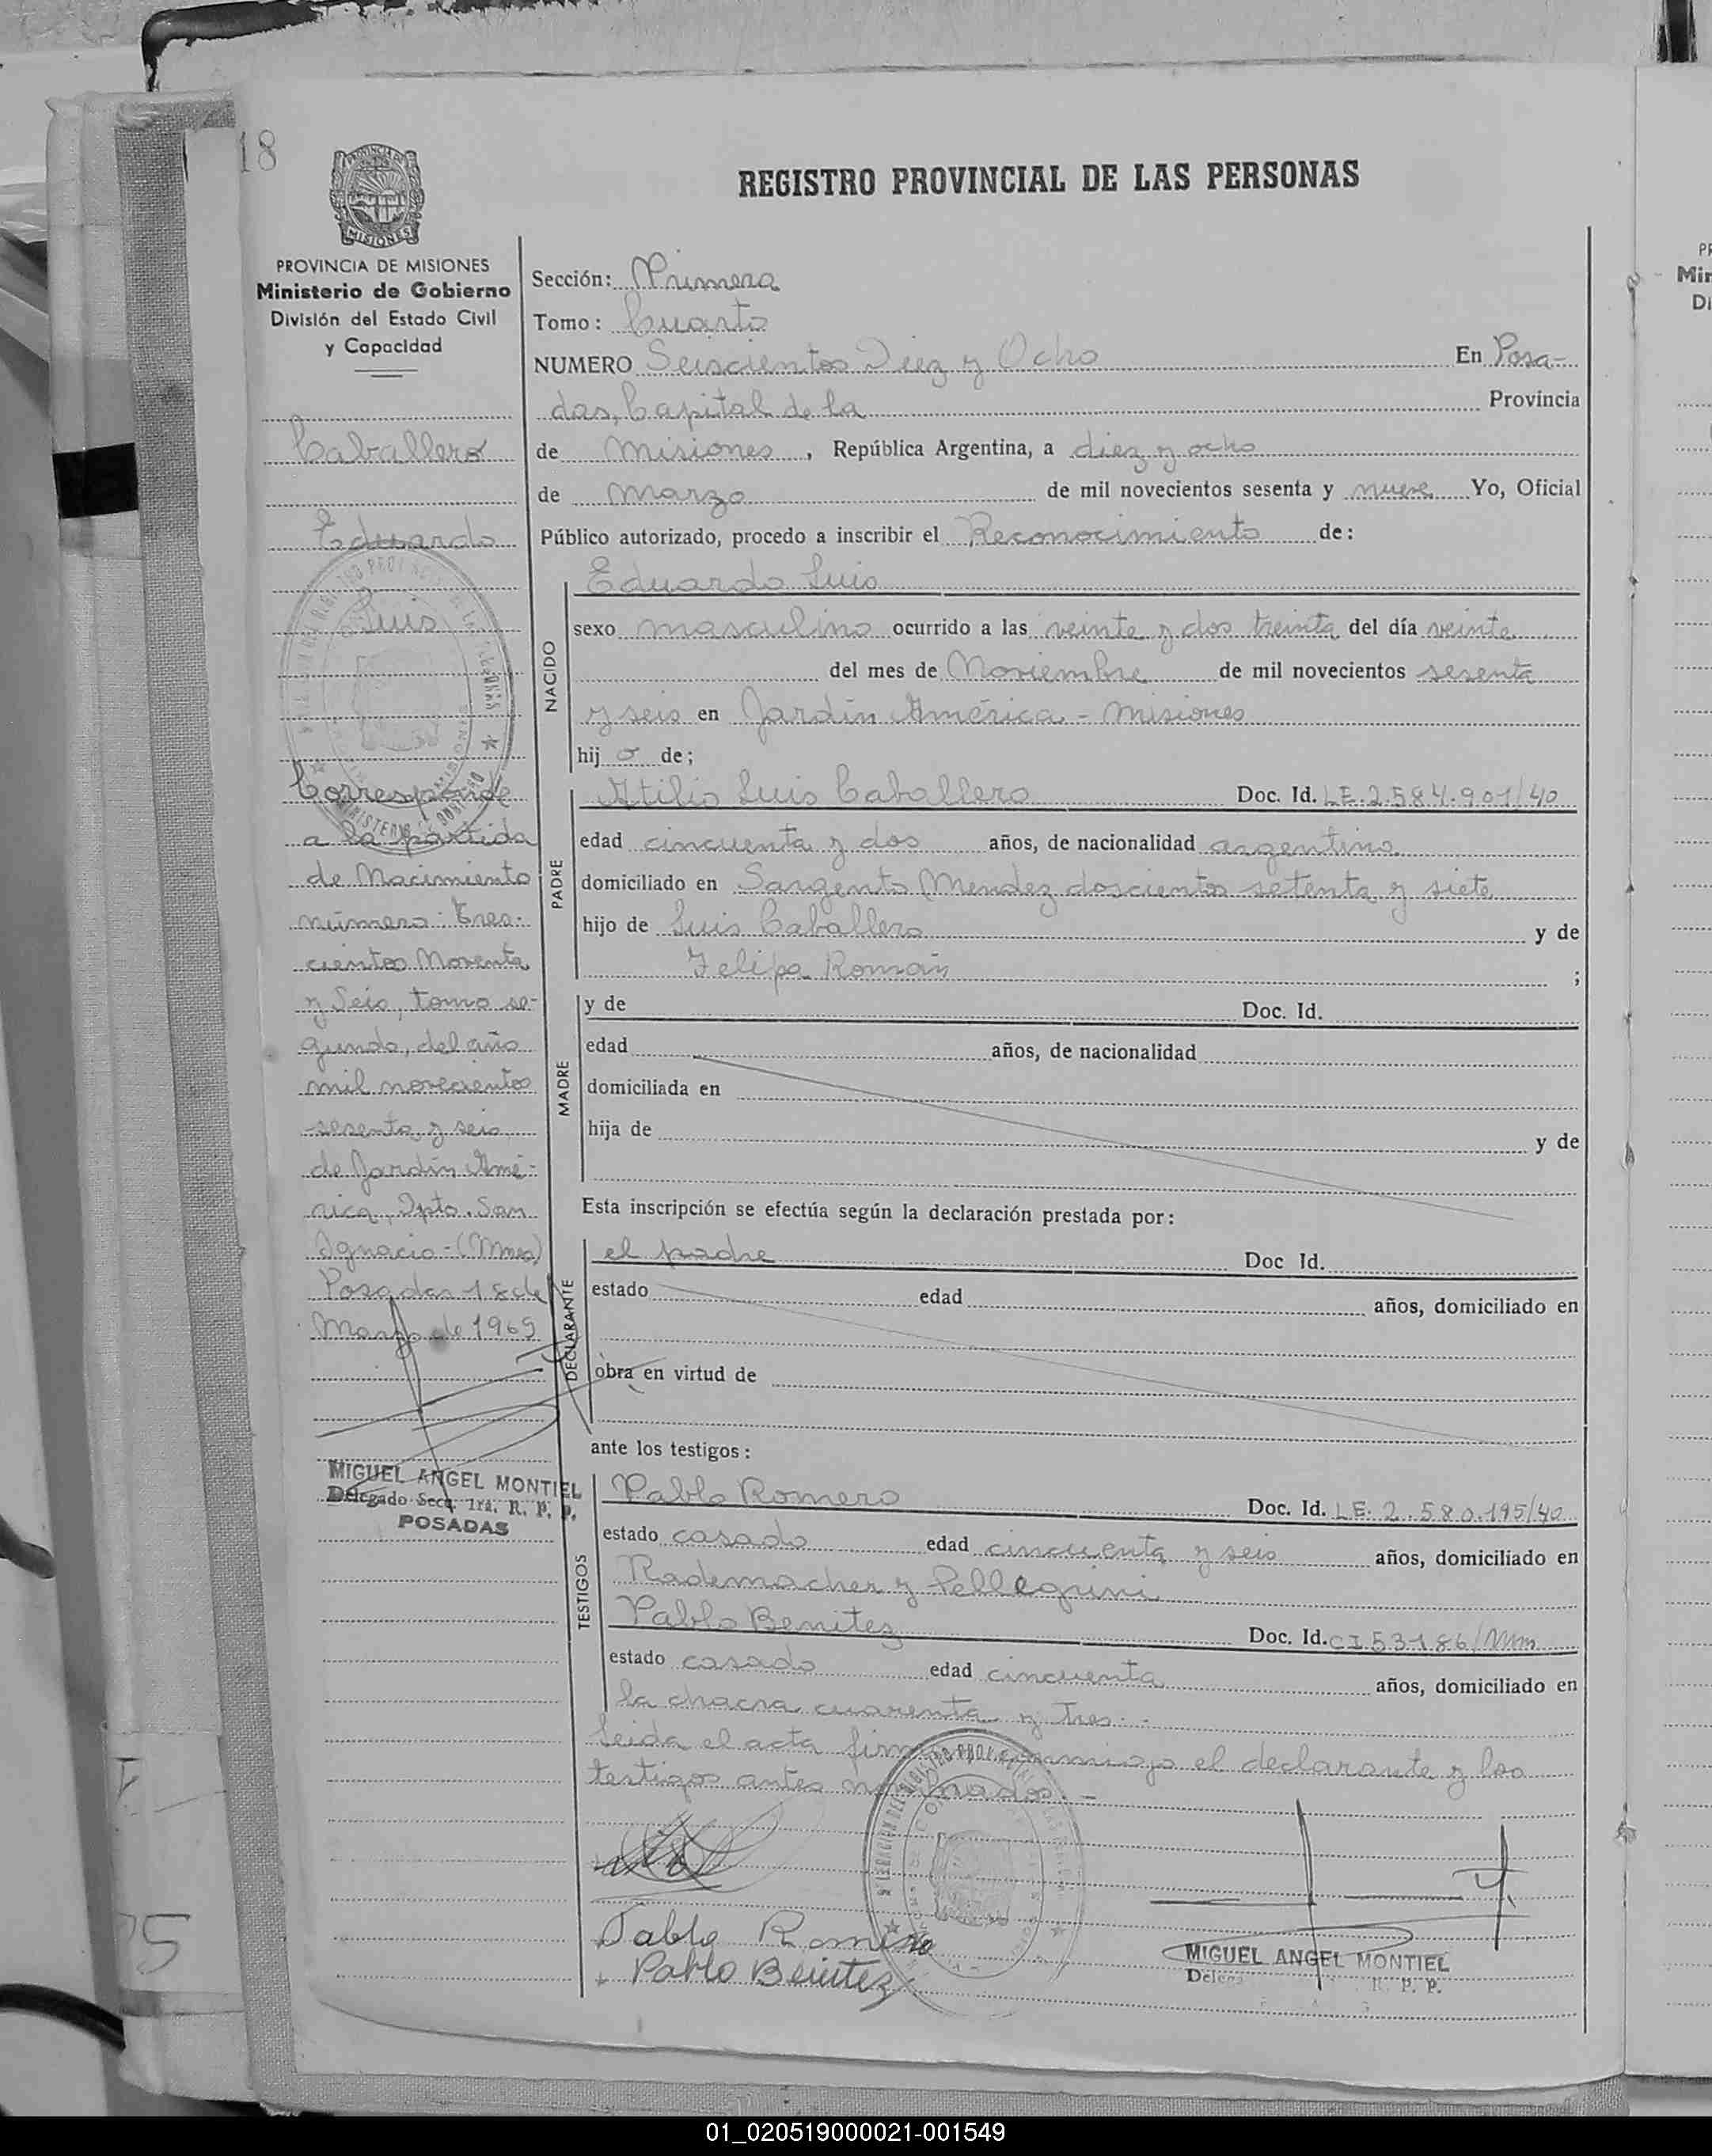 18
REGISTRO PROVINCIAL DE LAS PERSONAS
PROVINCIA DE MISIONES
Ministerio de Gobierno
División del Estado Civil
y Capacidad
Caballero
Eduardo
Luis
Corresponde
a la partida
de Nacimiento
número: Tres-
cientos Noventa
y Seis, tomo se-
gundo, del año
mil novecientos
sesenta y seis
de Jardín Amé-
rica, Dpto. San
Ignacio - (Mnes)
Posadas 18 de
Marzo de 1969
MIGUEL ANGEL MONTIEL
Delegado Secc. 1ra. R. P. P.
POSADAS
Sección: Primera
Tomo: Cuarto
NUMERO Seiscientos Diez y Ocho En Posa-
das, Capital de la Provincia
de Misiones, República Argentina, a diez y ocho
de Marzo de mil novecientos sesenta y nueve Yo, Oficial
Público autorizado, procedo a inscribir el Reconocimiento de:
NACIDO
Eduardo Luis
sexo masculino ocurrido a las veinte y dos treinta del día veinte
del mes de Noviembre de mil novecientos sesenta
y seis en Jardín América - Misiones
hij o de;
PADRE
Atilio Luis Caballero Doc. Id. LE. 2.584.901/40
edad cincuenta y dos años, de nacionalidad argentino
domiciliado en Sargento Mendez doscientos setenta y siete
hijo de Luis Caballero y de
Felipa Román ;
MADRE
y de Doc. Id.
edad años, de nacionalidad
domiciliada en
hija de y de
Esta inscripción se efectúa según la declaración prestada por:
DECLARANTE
el padre Doc Id.
estado edad años, domiciliado en
obra en virtud de
ante los testigos:
TESTIGOS
Pablo Romero Doc. Id. LE. 2.580.195/40
estado casado edad cincuenta y seis años, domiciliado en
Rademacher y Pellegrini
Pablo Benitez Doc. Id. CI 53186/Mnes
estado casado edad cincuenta años, domiciliado en
la chacra cuarenta y Tres.-
Leida el acta firman conmigo el declarante y los
testigos antes nombrados.-
Pablo Romero
Pablo Benitez
MIGUEL ANGEL MONTIEL
R. P. P.
PR
Min
Di
01_020519000021-001549